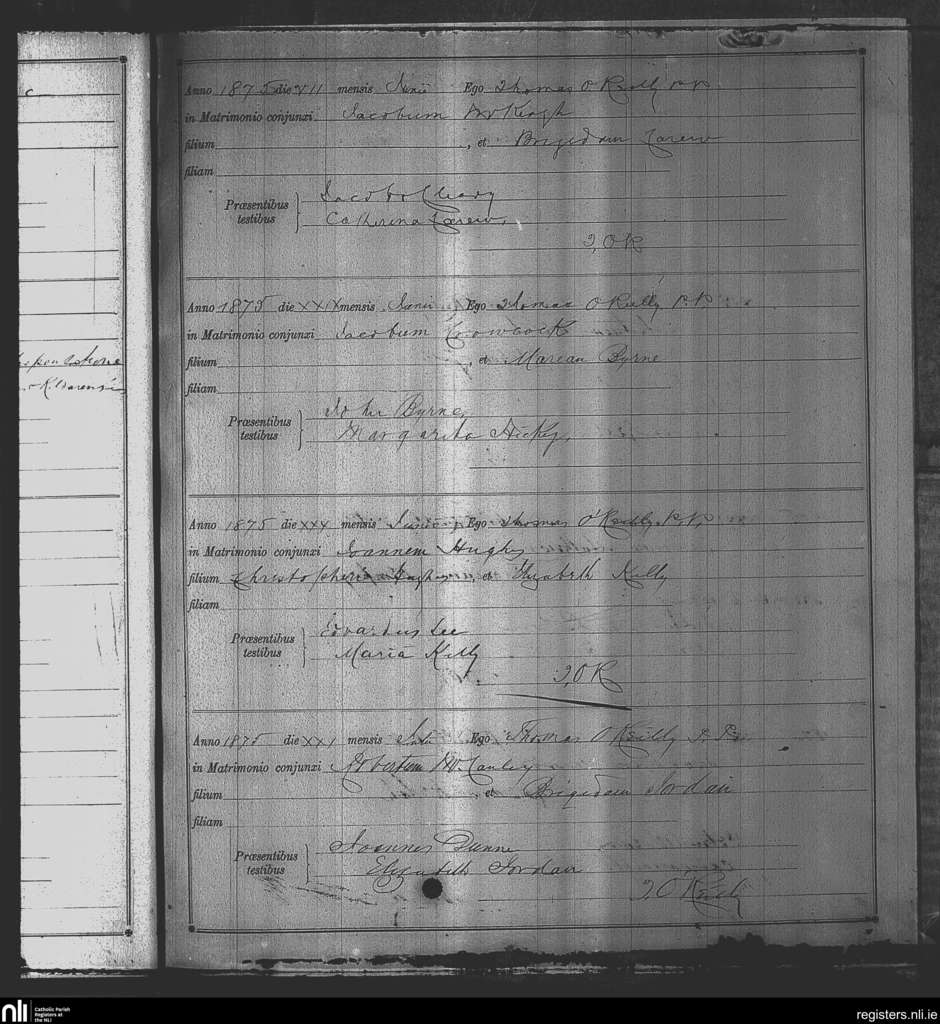 c
Anno 1875 die VII mensis Junii Ego Thomas O'Reilly P.P.
in Matrimonio conjunxi Jacobum McKeogh
filium , et Brigidam Carew
filiam
Præsentibus testibus
Jacobo Cleary
Catherina Carew,
T, OR
Anno 1875 die XXIX mensis Junii Ego Thomas O'Reilly P.P.
in Matrimonio conjunxi Jacobum
filium , et Mariam Byrne
filiam
Præsentibus testibus
John Byrne,
Margarita Hickey,
Kildarensi
Anno 1875 die XXX mensis Junii Ego Thomas O'Reilly P.P.
in Matrimonio conjunxi Joannem Hughs
filium et Elizabeth Kelly
filiam
Præsentibus testibus
Edvardus Lee
Maria Kelly
T, OR
Anno 1875 die XXI mensis Ego Thomas O'Reilly P.P.
in Matrimonio conjunxi Robertum
filium , et Brigidam Jordan
filiam
Præsentibus testibus
Joannes Dunne
Elizabeth Jordan
T, O'Reilly
nli Catholic Parish Registers at the NLI
registers.nli.ie